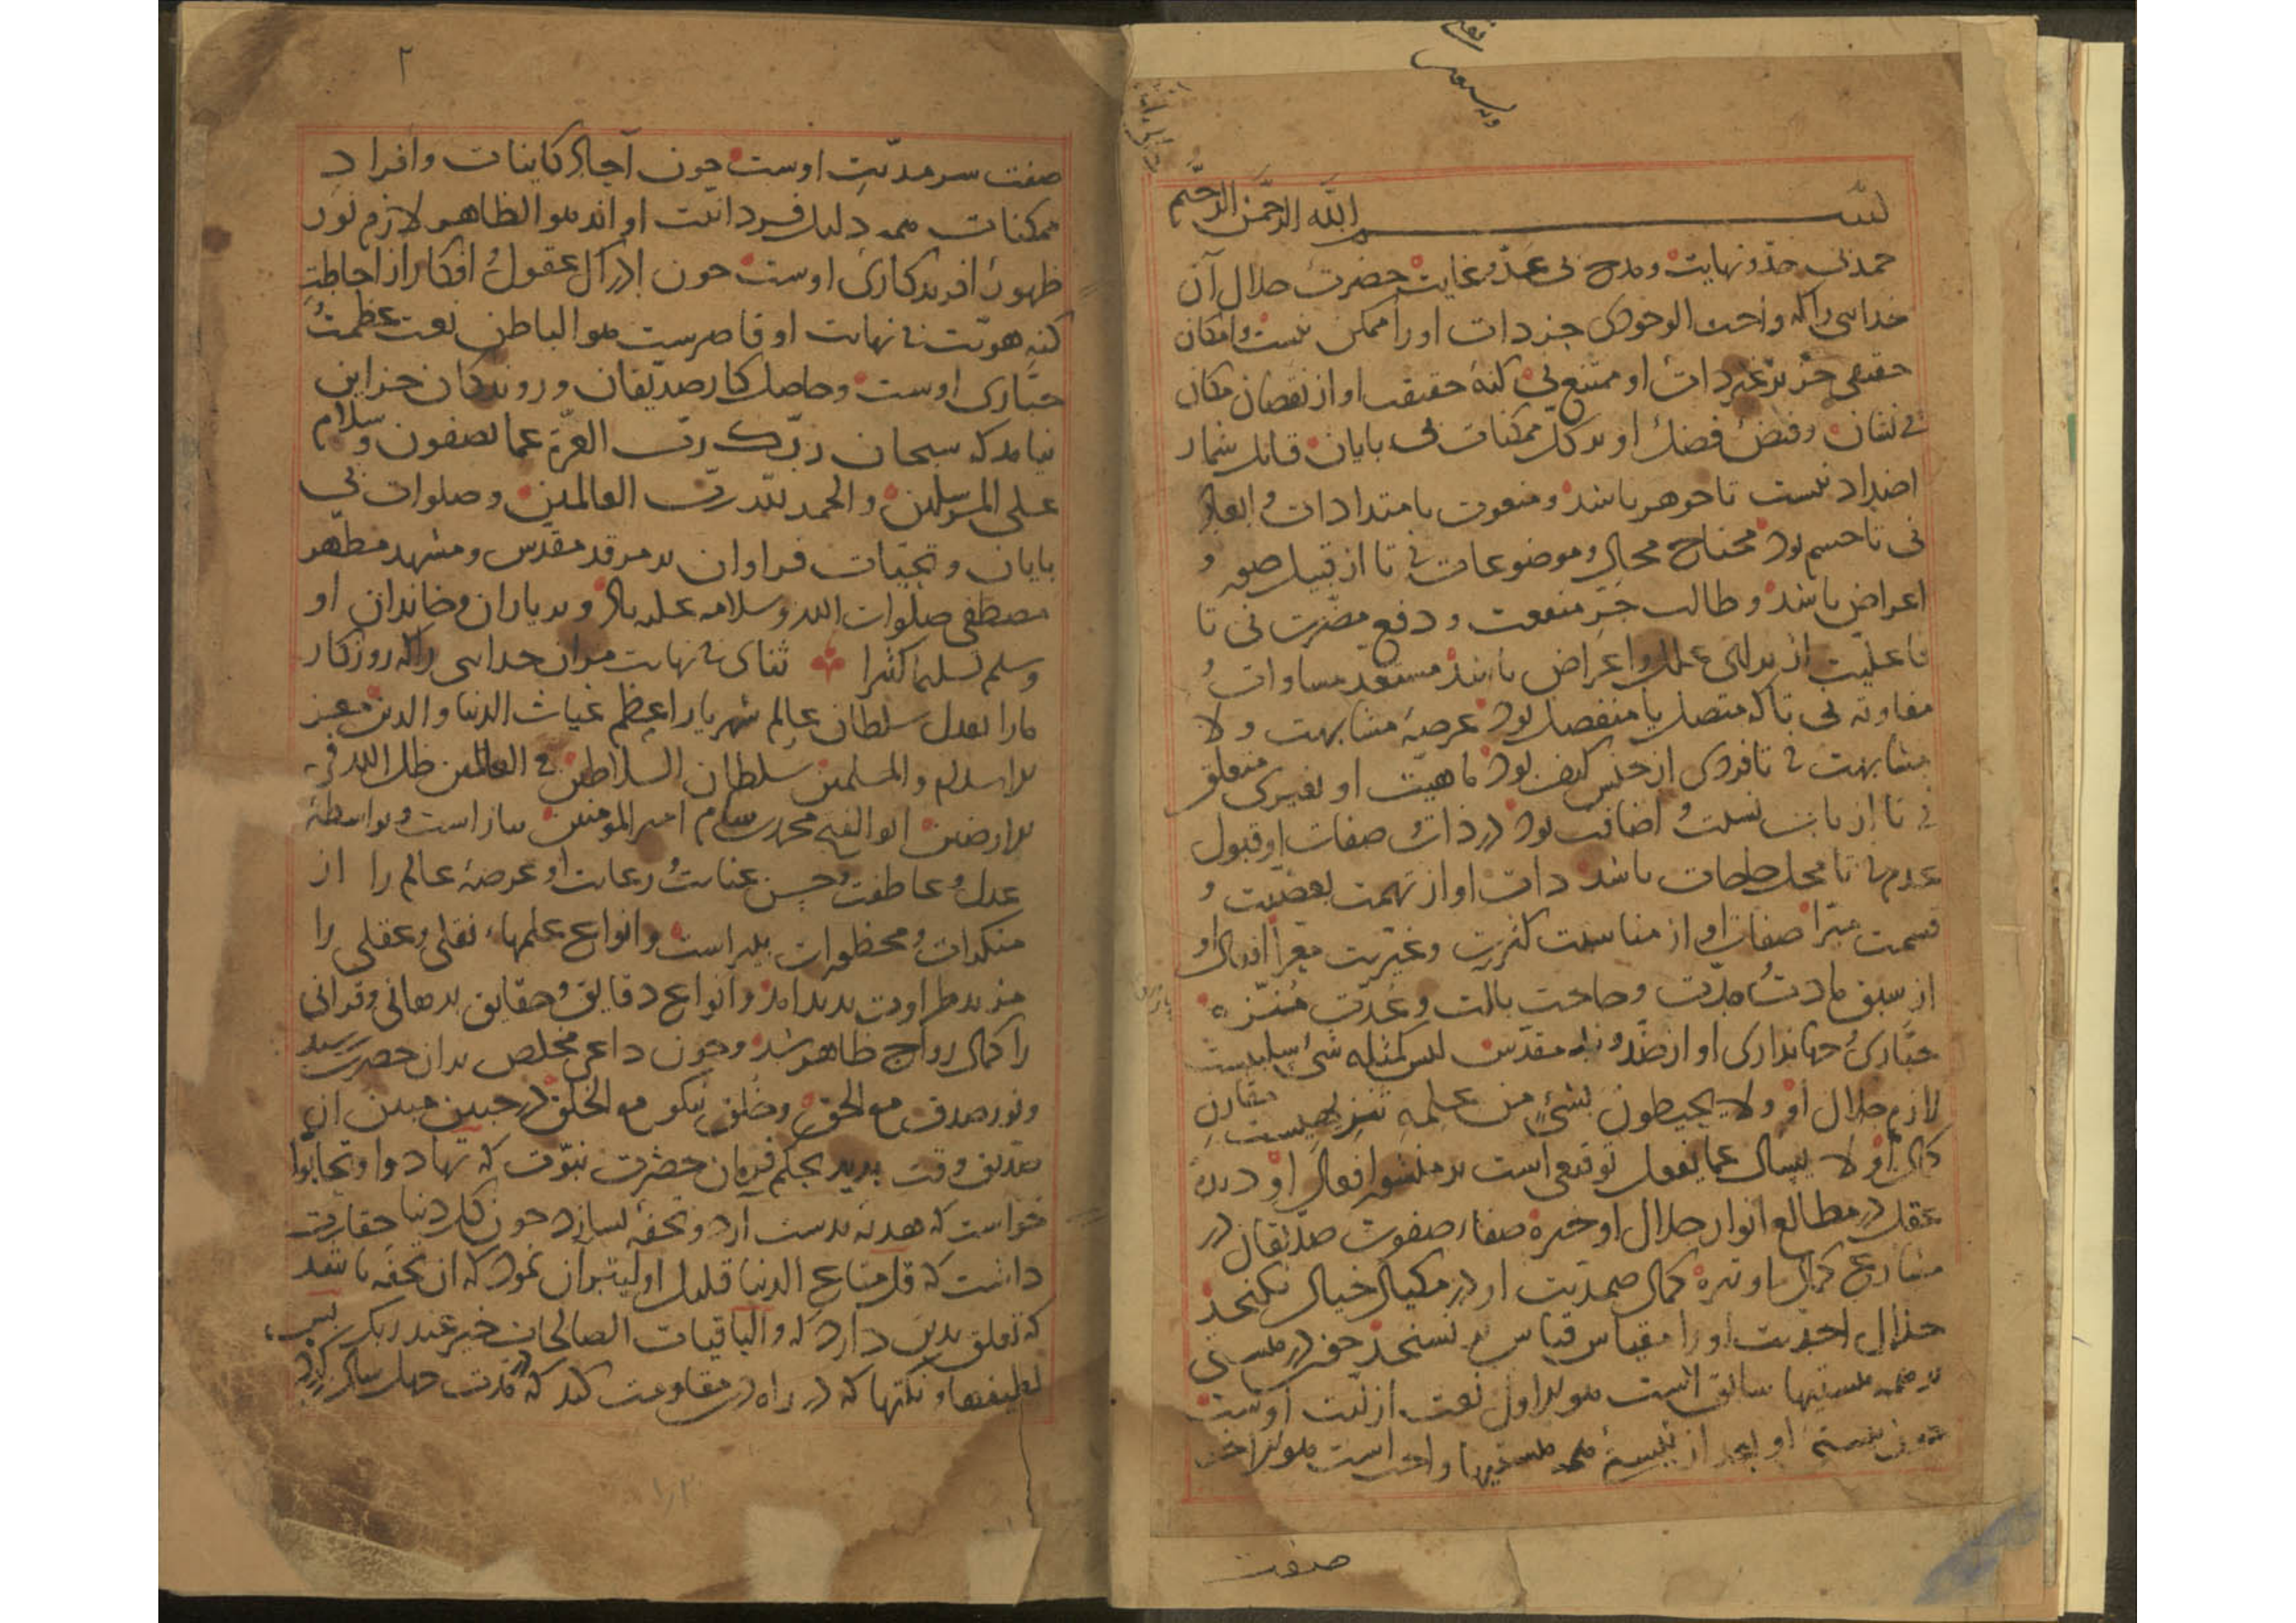 بسم الله الرحمن الرحيم
حمد بی حد و نهایت و مدح بی عد و غایت حضرت جلال آن
خدایی را که واجب الوجودی جز ذات او را ممکن نیست و امکان
حقیقی جز بر غیر ذات او ممتنع نی کنه حقیقت او از نقصان مکان
بی نشان و فیض فضل او بر کل ممکنات بی پایان قابل شمار
اضداد نیست تا جوهر باشد و منعوت بامتدادات و ابعاد
نی تا جسم بود محتاج محال و موضوعات نی تا از قبیل صور و
اعراض باشد و طالب جر منفعت و دفع مضرت نی تا
فاعلیت از برای علل و اعراض باشد مستعد مساوات و
مفاوته نی تا که متصل یا منفصل بود عرصه مشابهت و لا
مشابهت نی تا فردی از جنس کیف بود ماهیت او بغیری متعلق
نی تا از باب نسبت و اضافت بود در ذات و صفات او قبول
عدم نی تا محل حاجات باشد ذات او از تهمت بعضیت و
قسمت مبرا صفات او از مناسبت کثرت و غیریت معرا افعال او
از سبق مادت و مدت و حاجت بالت و عدت منزه
جباری و جهانداری او از ضد و ند مقدس لیس کمثله شئ سلبیست
لازم جلال او و لا یحیطون بشئ من علمه تنزیهیست مقارن
کمال او و لا یسال عما یفعل توقیعی است بر منشور افعال او دیده
عقل در مطالع انوار جلال او خیره صفاء صفوت صدیقان در
مشارع کمال او تیره کمال صمدیت او در مکیال خیال نگنجد
جلال احدیت او را مقیاس قیاس بر نسنجد چون در هستی
بر همه هستیها سابق است هو الاول نعت ازلیت اوست
چون هستی او بعد از نیستی همه هستیها واجب است هو الاخر
صفت
۲
صفت سرمدیت اوست چون آجال کاینات و افراد
ممکنات همه دلیل فردانیت او اند هو الظاهر لازم نور
ظهور افریدکاری اوست چون ادراک عقول و افکار از احاطت
کنه هویت بی نهایت او قاصرست هو الباطن نعت عظمت
جباری اوست و حاصل کار صدیقان و روندکان جز این
نیامد که سبحان ربک رب العزة عما یصفون و سلام
علی المرسلین و الحمد لله رب العالمین و صلوات بی
پایان و تحیات فراوان بر مرقد مقدس و مشهد مطهر
مصطفی صلوات الله و سلامه علیه باد و بر یاران و خاندان او
و سلم تسلیما کثیرا ثنای بی نهایت مران خدایی را که روزکار
مارا بعدل سلطان عالم شهریار اعظم غیاث الدنیا و الدین معز
الاسلام و المسلمین سلطان السلاطین فی العالمین ظل الله فی
الارضین ابو الفتح محمد سام امیر المومنین بیاراست و بواسطه
عدل و عاطفت و حسن عنایت و رعایت او عرصه عالم را از
منکرات و محظورات بپیراست و انواع علمهاء نقلی و عقلی را
مزید طراوت پدید امد و انواع دقایق و حقایق برهانی و قرانی
را کمال رواج ظاهر شد و چون داعی مخلص بدان حضرت رسید
و نور صدق مع الحق و خلق نیکو مع الخلق در جبین مبین ان
صدیق وقت بدید بحکم فرمان حضرت نبوت که تهادوا و تحابوا
خواست که هدیه بدست ارد و تحفه بسازد چون کل دنیا حقارت
داشت که قل متاع الدنیا قلیل اولیتر ان نمود که ان تحفه باشد
که تعلق بدین دارد که و الباقیات الصالحات خیر عند ربک پس
لطیفها و نکتها که در راه دین مقاومت کند که در مدت چهل سال کرد